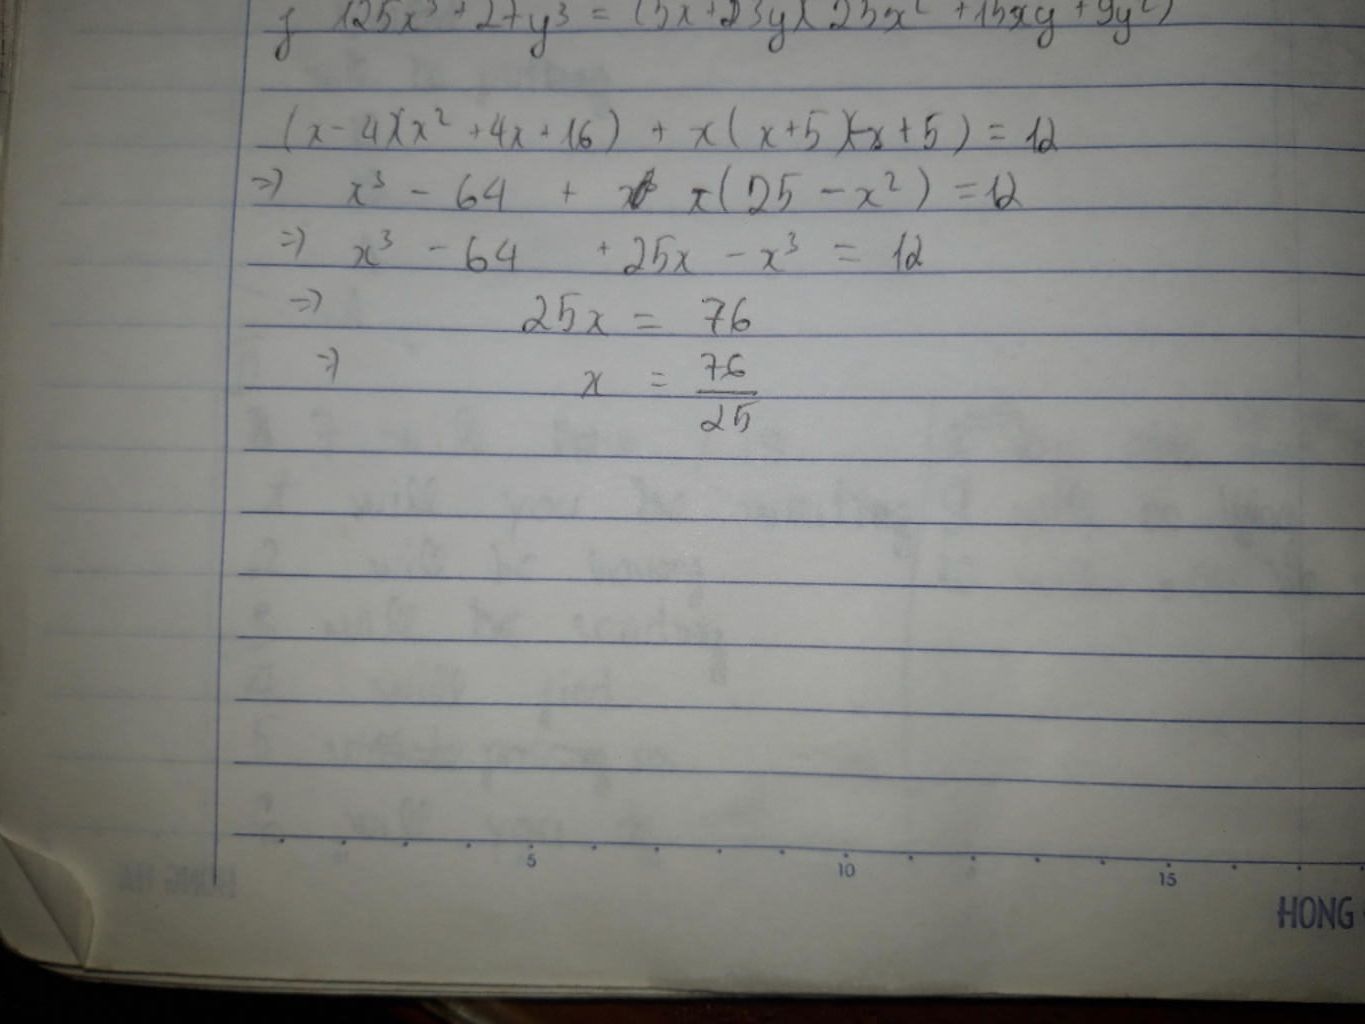 f 125x³ + 27y³ = (5x+23y)(25x² + 15xy + 9y²)
(x - 4)(x² + 4x + 16) + x(x+5)(-x+5) = 12
=> x³ - 64 + x(25 - x²) = 12
=> x³ - 64 + 25x - x³ = 12
=> 25x = 76
=> x = 76/25
5 10 15
HONG